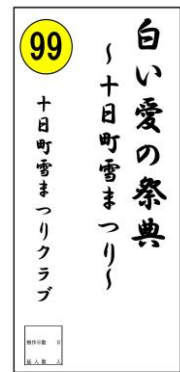 白い愛の祭典
~十日町雪まつり~
99
十日町雪まつりクラブ